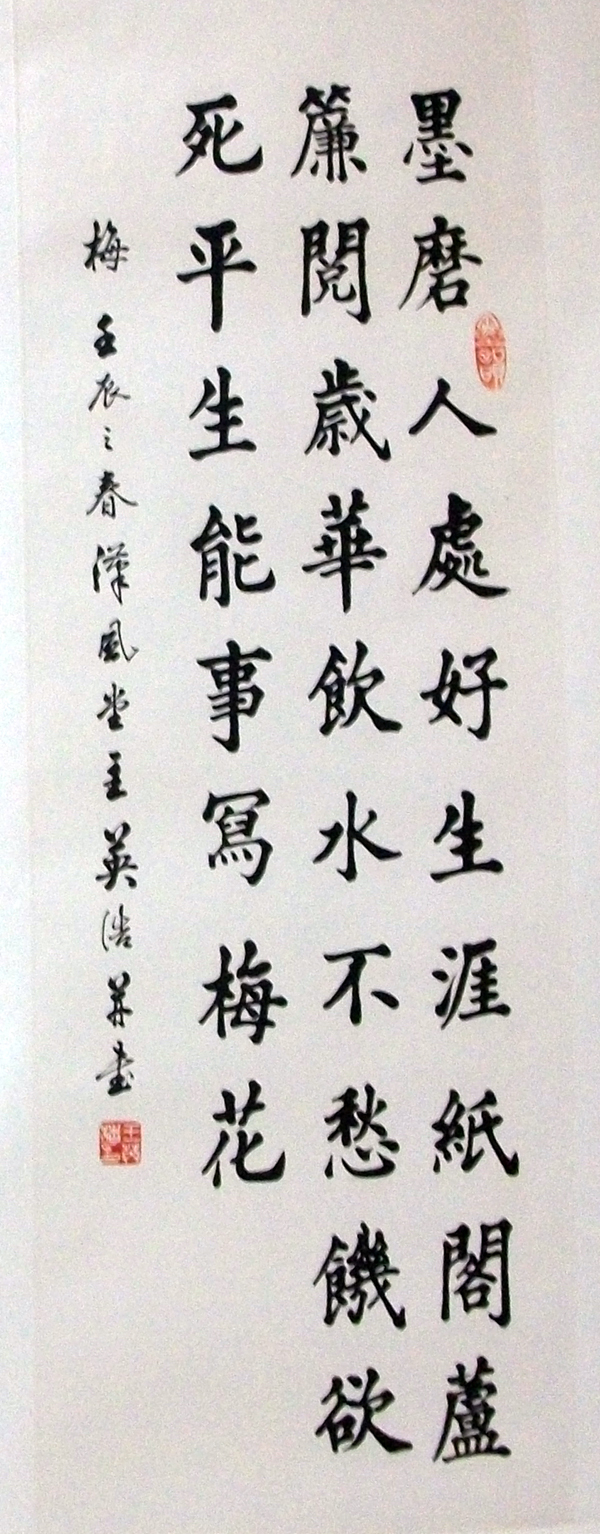 墨磨人處好生涯紙閣蘆
簾閱歲華飲水不愁饑欲
死平生能事寫梅花
梅 壬辰之春漢風堂主英浩並書